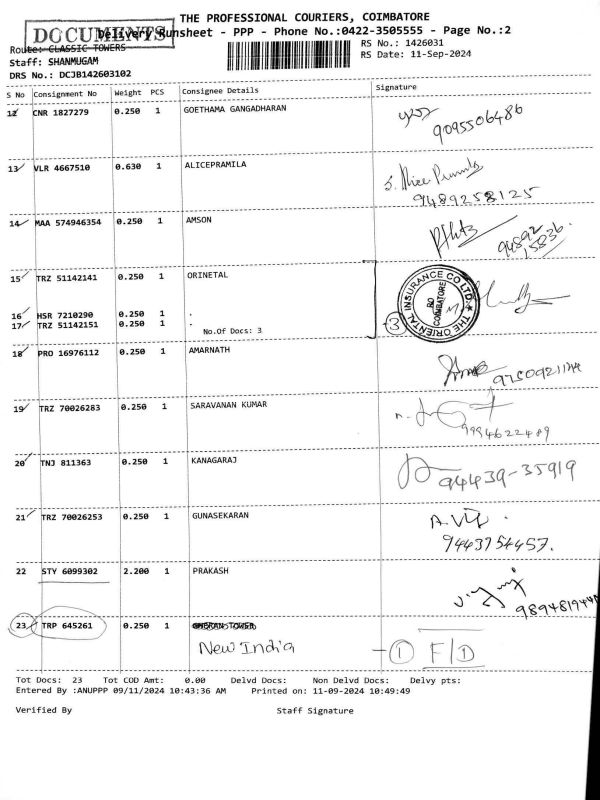 THE PROFESSIONAL COURIERS, COIMBATORE
DOCUMENTS
Delivery Runsheet - PPP - Phone No.:0422-3505555 - Page No.:2
Route: CLASSIC TOWERS
RS No.: 1426031
Staff: SHANMUGAM
RS Date: 11-Sep-2024
DRS No.: DCJB142603102
S No Consignment No Weight PCS Consignee Details Signature
12 CNR 1827279 0.250 1 GOETHAMA GANGADHARAN
9095506486
13 VLR 4667510 0.630 1 ALICEPRAMILA
9489258125
14 MAA 574946354 0.250 1 AMSON
94892
15836.
15 TRZ 51142141 0.250 1 ORINETAL
THE ORIENTAL INSURANCE CO LTD.
RO
COIMBATORE
16 HSR 7210290 0.250 1 .
17 TRZ 51142151 0.250 1 .
3
No.Of Docs: 3
18 PRO 16976112 0.250 1 AMARNATH
19 TRZ 70026283 0.250 1 SARAVANAN KUMAR
9994622489
20 TNJ 811363 0.250 1 KANAGARAJ
94439-35919
21 TRZ 70026253 0.250 1 GUNASEKARAN
9443754457.
22 STY 6099302 2.200 1 PRAKASH
23 TRP 645261 0.250 1
New India
1 F/D
Tot Docs: 23 Tot COD Amt: 0.00 Delvd Docs: Non Delvd Docs: Delvy pts:
Entered By :ANUPPP 09/11/2024 10:43:36 AM Printed on: 11-09-2024 10:49:49
Verified By Staff Signature